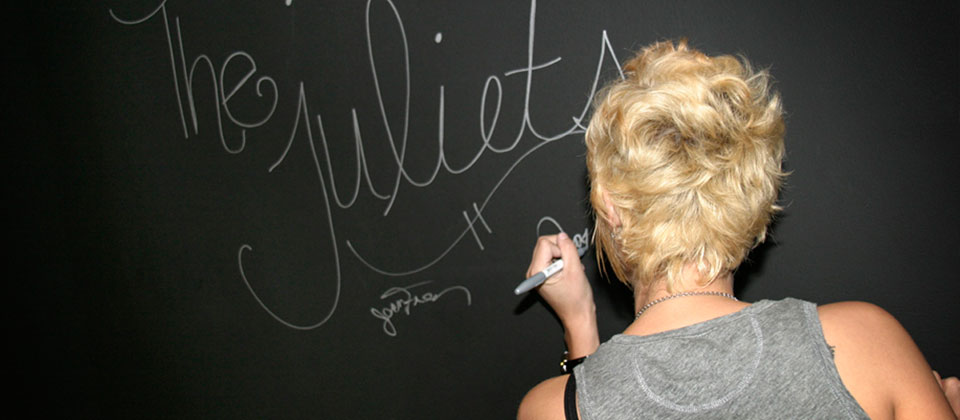 The Juliets